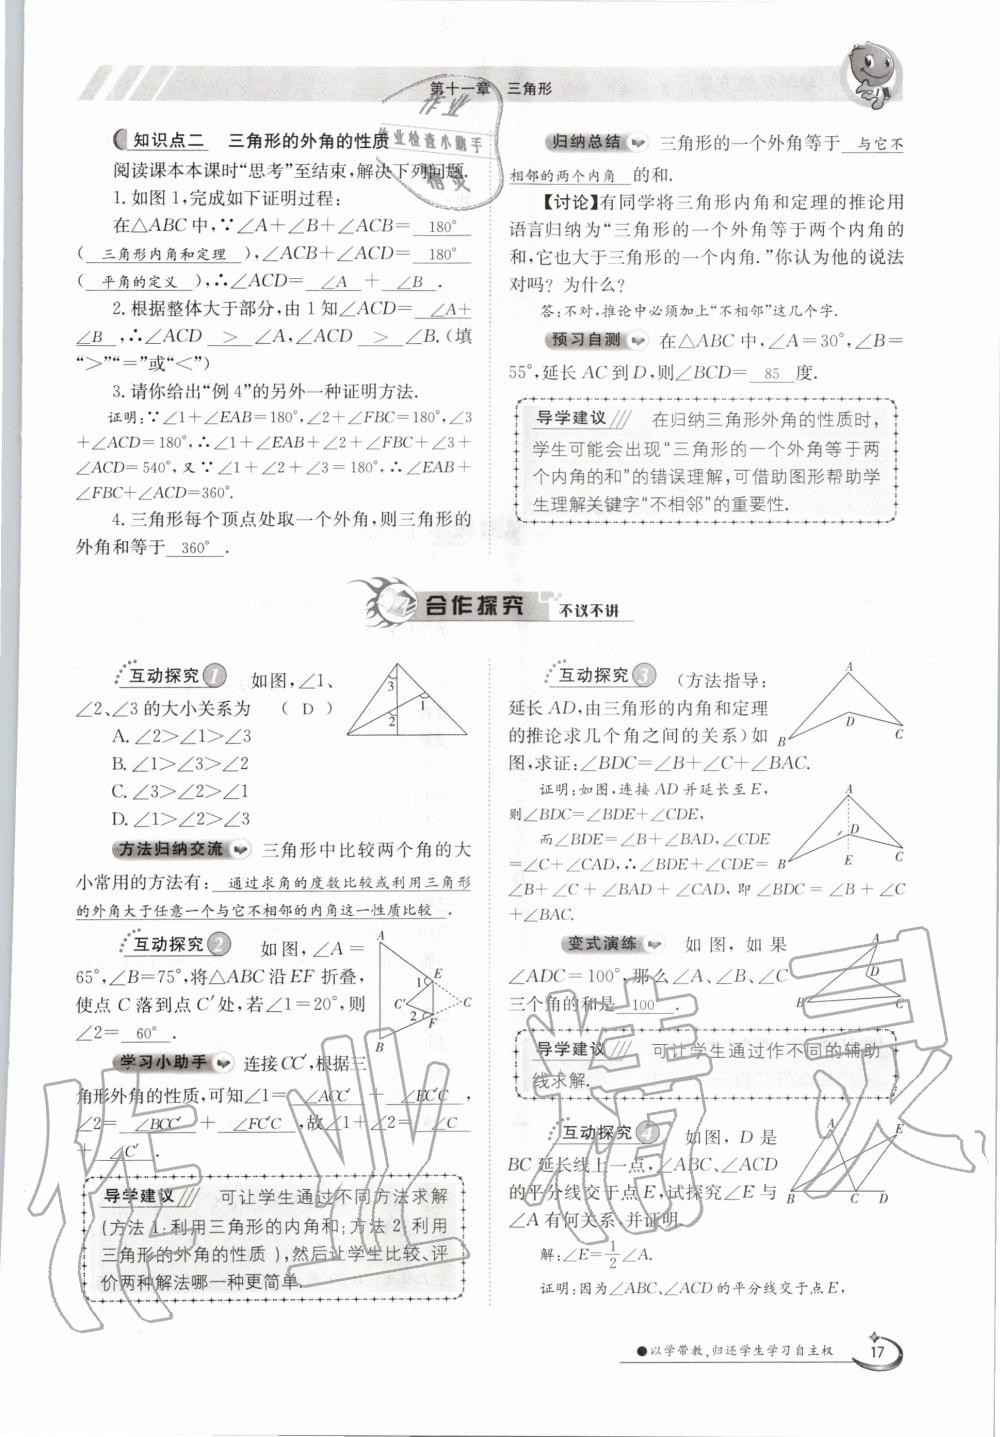 第十一章 三角形
作业
作业检查小助手
精灵
知识点二 三角形的外角的性质
阅读课本本课时“思考”至结束,解决下列问题.
1.如图1,完成如下证明过程:
在△ABC中,∵∠A+∠B+∠ACB= 180°
( 三角形内角和定理 ),∠ACB+∠ACD= 180°
( 平角的定义 ),∴∠ACD= ∠A + ∠B .
2.根据整体大于部分,由1知∠ACD= ∠A+
∠B ,∴∠ACD > ∠A,∠ACD > ∠B.(填
“>”“=”或“<”)
3.请你给出“例4”的另外一种证明方法.
证明:∵∠1+∠EAB=180°,∠2+∠FBC=180°,∠3
+∠ACD=180°,∴∠1+∠EAB+∠2+∠FBC+∠3+
∠ACD=540°,又∵∠1+∠2+∠3=180°,∴∠EAB+
∠FBC+∠ACD=360°.
4.三角形每个顶点处取一个外角,则三角形的
外角和等于 360° .
归纳总结 三角形的一个外角等于 与它不
相邻的两个内角 的和.
【讨论】有同学将三角形内角和定理的推论用
语言归纳为“三角形的一个外角等于两个内角的
和,它也大于三角形的一个内角.”你认为他的说法
对吗?为什么?
答:不对,推论中必须加上“不相邻”这几个字.
预习自测 在△ABC中,∠A=30°,∠B=
55°,延长AC到D,则∠BCD= 85 度.
导学建议 在归纳三角形外角的性质时,
学生可能会出现“三角形的一个外角等于两
个内角的和”的错误理解,可借助图形帮助学
生理解关键字“不相邻”的重要性.
合作探究 不议不讲
互动探究1 如图,∠1、
∠2、∠3的大小关系为 ( D )
A.∠2>∠1>∠3
B.∠1>∠3>∠2
C.∠3>∠2>∠1
D.∠1>∠2>∠3
3
1
2
方法归纳交流 三角形中比较两个角的大
小常用的方法有: 通过求角的度数比较或利用三角形
的外角大于任意一个与它不相邻的内角这一性质比较 .
互动探究2 如图,∠A=
65°,∠B=75°,将△ABC沿EF折叠,
使点C落到点C′处,若∠1=20°,则
∠2= 60° .
A
E
1
C′
C
2
F
B
学习小助手 连接CC′,根据三
角形外角的性质,可知∠1= ∠ACC′ + ∠EC′C ,
∠2= ∠BCC′ + ∠FC′C ,故∠1+∠2= ∠C
+ ∠C′ .
导学建议 可让学生通过不同方法求解
(方法1:利用三角形的内角和;方法2:利用
三角形的外角的性质),然后让学生比较、评
价两种解法哪一种更简单.
互动探究3 (方法指导:
延长AD,由三角形的内角和定理
的推论求几个角之间的关系)如
图,求证:∠BDC=∠B+∠C+∠BAC.
A
D
B
C
证明:如图,连接AD并延长至E,
则∠BDC=∠BDE+∠CDE,
而∠BDE=∠B+∠BAD,∠CDE
=∠C+∠CAD,∴∠BDE+∠CDE=
∠B+∠C+∠BAD+∠CAD,即∠BDC=∠B+∠C
+∠BAC.
A
D
B
E
C
变式演练 如图,如果
∠ADC=100°,那么∠A、∠B、∠C
三个角的和是 100° .
A
D
B
C
导学建议 可让学生通过作不同的辅助
线求解.
互动探究4 如图,D是
BC延长线上一点,∠ABC、∠ACD
的平分线交于点E,试探究∠E与
∠A有何关系,并证明.
A
E
B
C
D
解:∠E=1/2∠A.
证明:因为∠ABC、∠ACD的平分线交于点E,
●以学带教,归还学生学习自主权
17
作业精灵